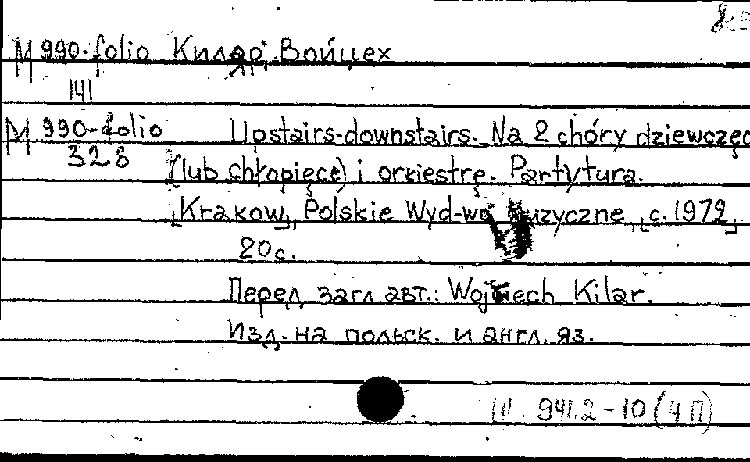 М 990-folio Килар, Войцех
141
М 990-folio Upstairs-downstairs. Na 2 chóry dziewczęc
328 (lub chłopięce) i orkiestrę. Partytura.
[Krakow], Polskie Wyd-wo Muzyczne, [c. 1972].
20 с.
Перед загл. авт.: Wojciech Kilar.
Изд. на польск. и англ. яз.
Ш 941.2-10 (4 П)